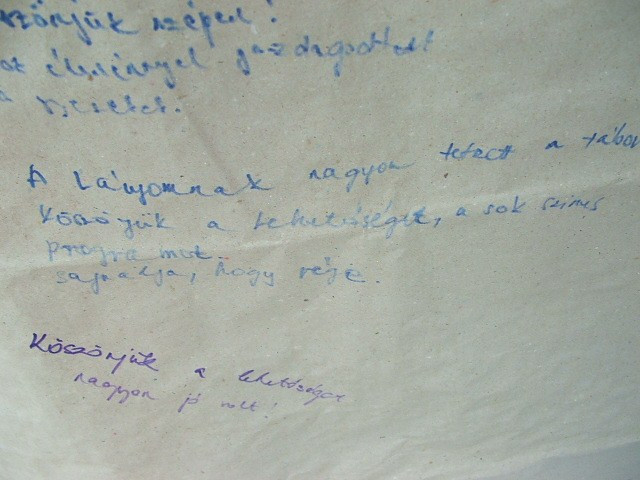 szönjük szépen!
élménnyel gazdagodtott
A Lányomnak nagyon tetszett a tábor
Köszönjük a lehetőséget, a sok színes
programot.
sajnálja, hogy vége.
Köszönjük a lehetőséget
nagyon jó volt!